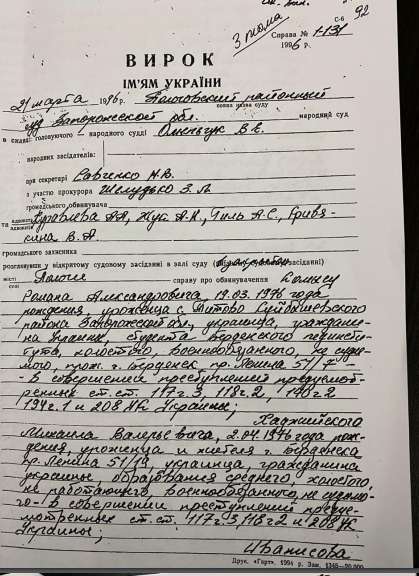 92
С-6
3 тома
Справа № 1-131
1996 р.
ВИРОК
ІМ'ЯМ УКРАЇНИ
21 марта 1996 р. Пологовский районный
повна назва суду
суд Запорожской обл. народный суд
в складі: головуючого народного судді Омельчук В.Е.
народних засідателів:
при секретарі Савченко Н.В.
з участю прокурора Шелудько З.Л.
громадського обвинувача
адвоката Журавлева А.А., Жук А.К., Гиль А.С., Гривя-
кина В.А.
громадського захисника
розглянувши у відкритому судовому засіданні в залі суду закрытом засіданні)
місті Пологи справу про обвинувачення
Романа Александровича, 19.03.1976 года
рождения, уроженца с. Куйбышевского
района Запорожской обл., украинца, граждани-
на Украины, студента Бердянского пединсти-
тута, холостого, военнообязанного, не суди-
мого, прож. г. Бердянск пр. Ленина 51/7 -
- в совершении преступлений предусмот-
ренных ст.ст. 117 ч.3, 118 ч.2, 140 ч.2
194 ч.1 и 208 УК Украины;
Хаджийского
Михаила Валерьевича, 2.04.1976 года рож-
дения, уроженца и жителя г. Бердянска
пр. Ленина 51/19, украинца, гражданина
Украины, образования среднего, холостого,
не работающего, военнообязанного, не судимо-
го - в совершении преступлений предус-
мотренных ст.ст. 117 ч.3, 118 ч.2 и 208 УК
Украины;
Иванисова
Друк. «Гарт», 1994 р. Зам.